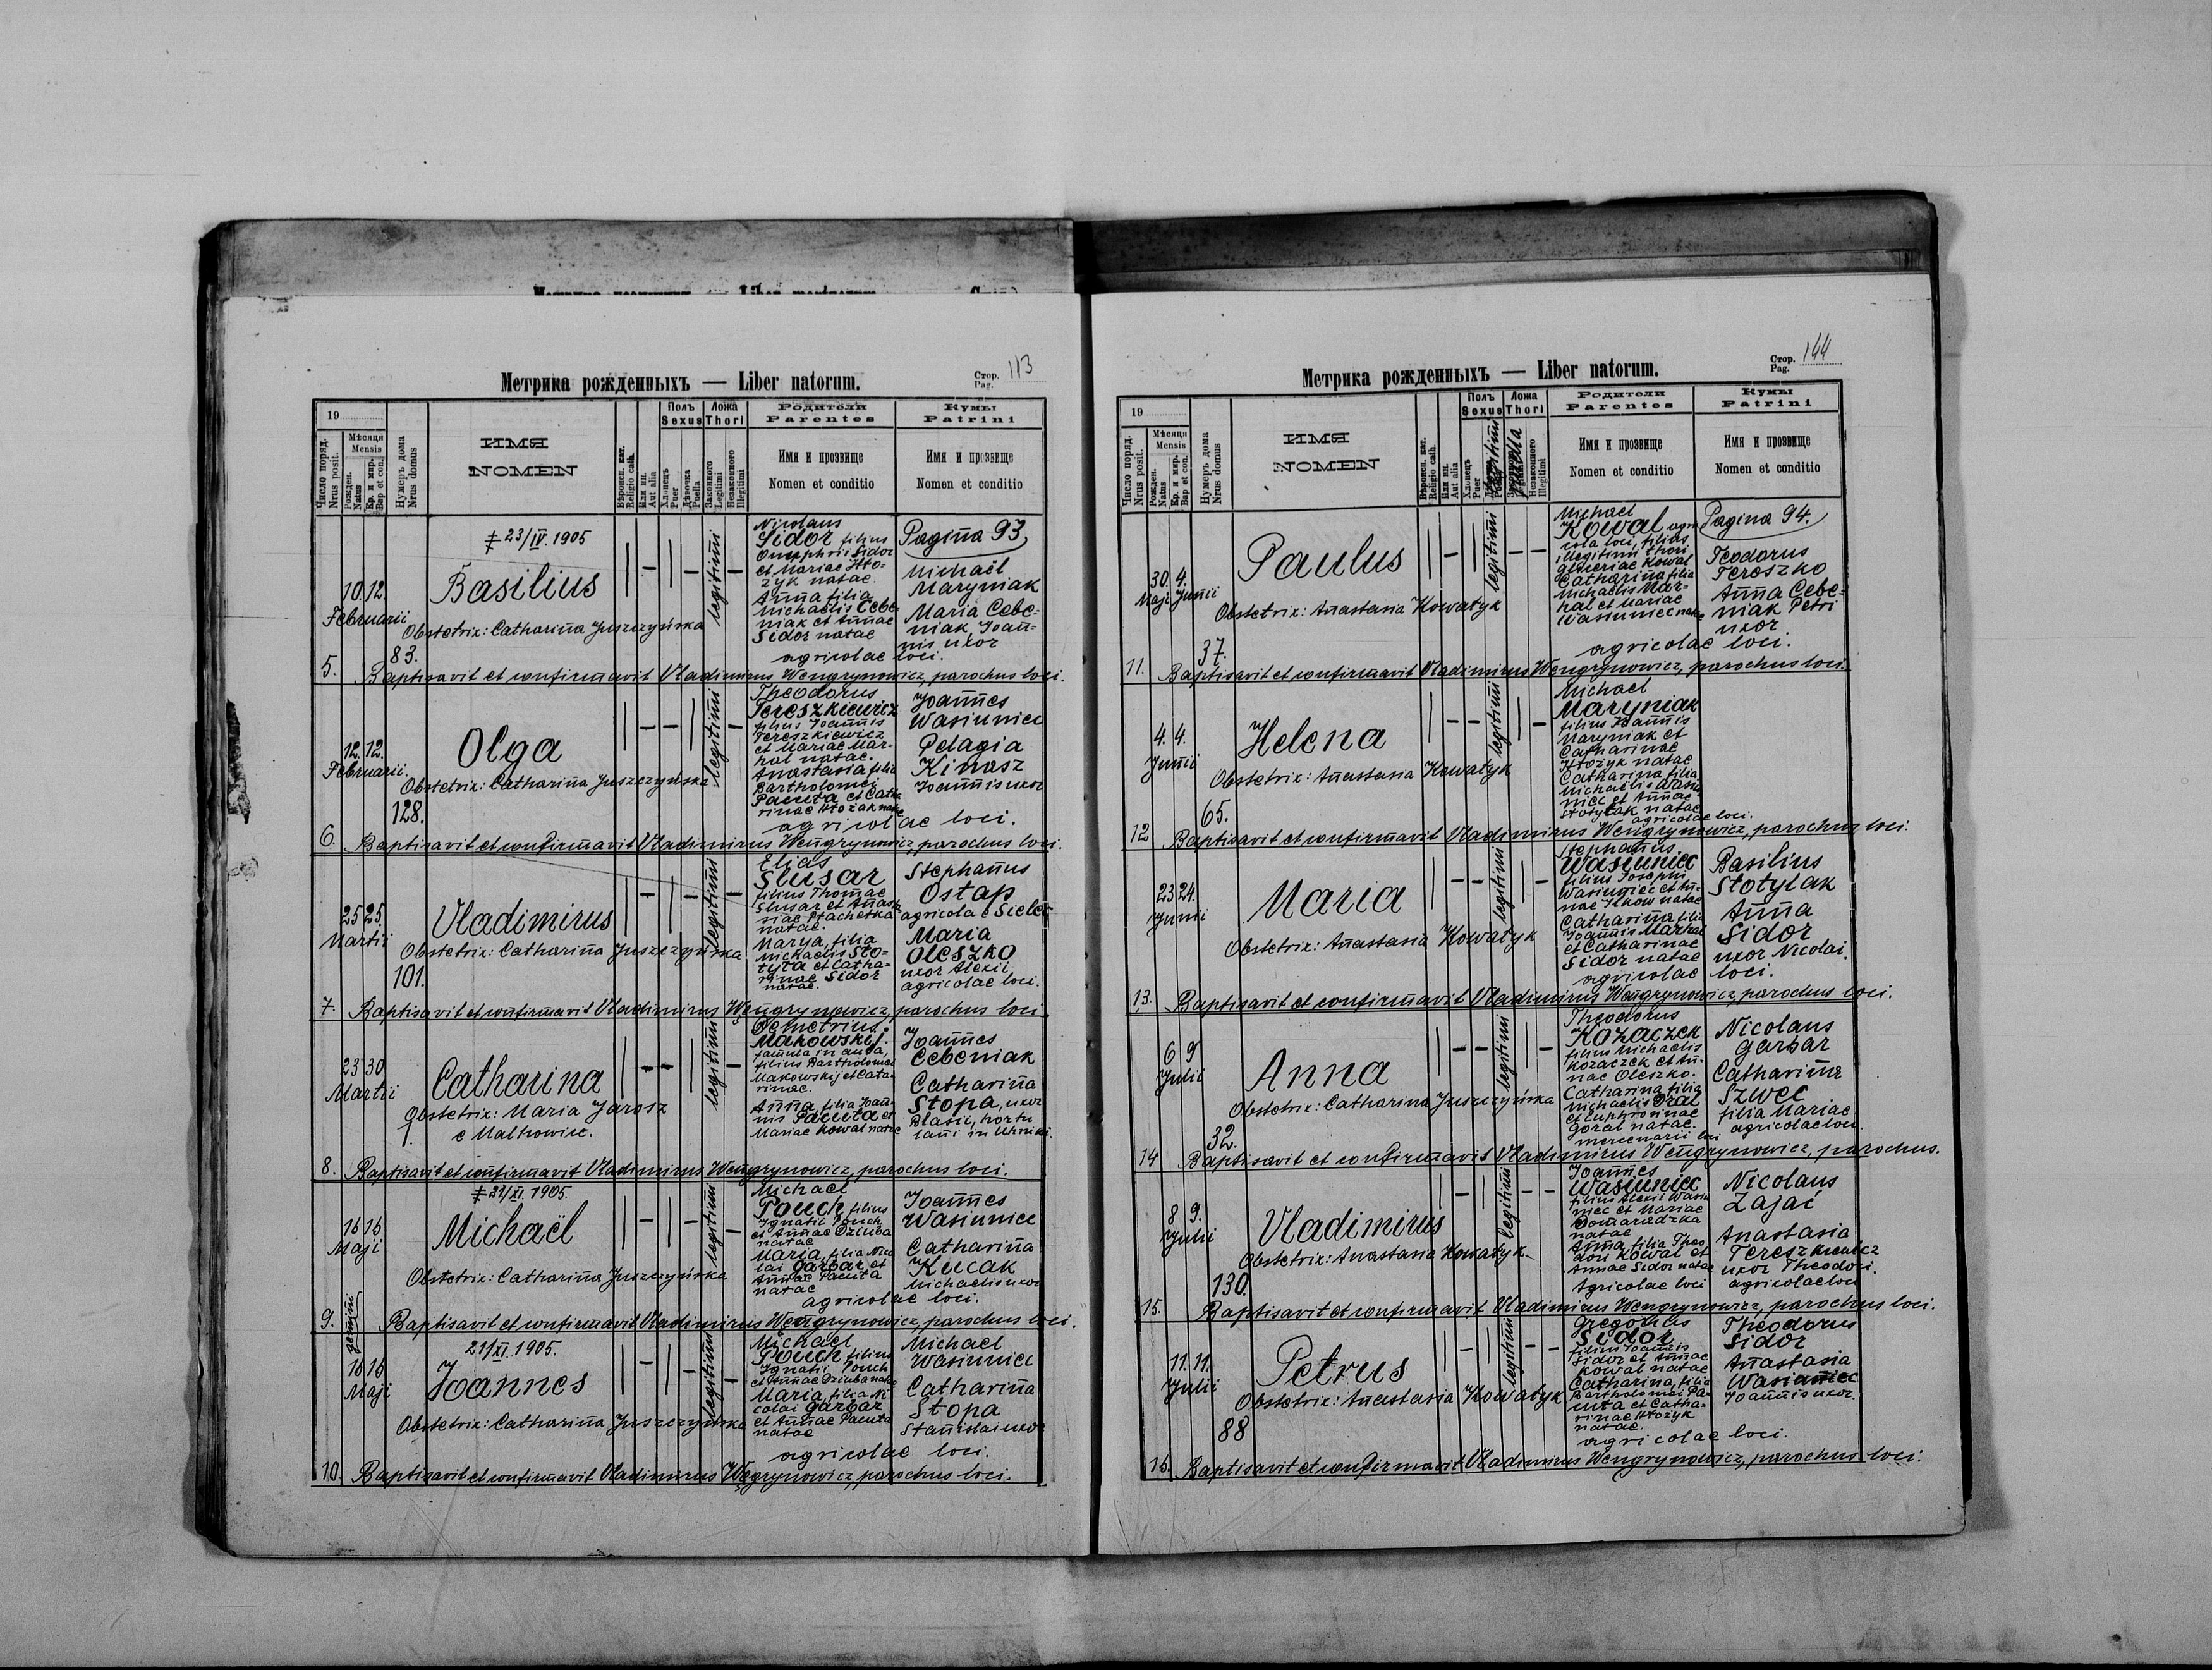 Метрика рожденныхъ — Liber natorum.
Стор. Pag. 113
19
Число поряд. Nrus posit.
Мѣсяця Mensis
Рожден. Natus
Кр. и мир. Bap et con.
Нумеръ дома Nrus domus
ИМЯ
NOMEN
Вѣроисп. кат. Religio cath.
Или ин. Aut alia
Полъ Sexus
Хлопецъ Puer
Дѣвочка Puella
Ложа Thori
Законного Legitimi
Незаконного Illegitimi
Родители
Parentes
Имя и прозвище
Nomen et conditio
Кумы
Patrini
Имя и прозвище
Nomen et conditio
ǂ 23/IV. 1905
10. 12.
Februarii
Basilius
legitimi
Obstetrix: Catharina Juszczyńska
83.
Nicolaus
Sidor filius
Onuphrii Sidor
et Mariae Hto-
zyk natae.
Anna filia
Michaelis Cebe-
niak et Annae
Sidor natae
Pagina 93
Michaël
Maryniak
Maria Cebe-
niak, Joan-
nis uxor
agricolae loci.
5. Baptisavit et confirmavit Vladimirus Wengrynowicz, parochus loci.
12. 12.
Februarii.
Olga
legitimi
Obstetrix: Catharina Juszczyńska
128.
Theodorus
Tereszkiewicz
filius Joannis
Tereszkiewicz
et Mariae Mar-
hal natae.
Anastasia filia
Bartholomei
Pacuta et Catha
rinae Htozak natae
Joannes
Wasiuniec
Pelagia
Kinasz
Joannis uxor
agricolae loci.
6. Baptisavit et confirmavit Vladimirus Wengrynowicz, parochus loci.
25 25
Martii
Vladimirus
legitimi
Obstetrix: Catharina Juszczyńska
101.
Elias
Slusar
filius Thomae
Slusar et Anasta
siae Ptachetka
natae.
Marya, filia
Michaelis Sto-
tyta et Catha-
rinae Sidor
natae.
Stephanus
Ostap
agricola e Sielec
Maria
Oleszko
uxor Alexii
agricolae loci.
7. Baptisavit et confirmavit Vladimirus Wengrynowicz, parochus loci
23 30
Martii
Catharina
legitimi
Obstetrix: Maria Jarosz
e Malhowice.
Demetrius
Makowskij.
famula in aula,
filius Bartholomei
Makowskij et Cata-
rinae.
Anna, filia Joan-
nis Pacuta et
Mariae Kowal natae
Joannes
Cebeniak
Catharina
Stopa, uxor
Blasii, hortu
lani in
8. Baptisavit et confirmavit Vladimirus Wengrynowicz, parochus loci.
ǂ 21/XI. 1905.
16 16
Maji
Michaël
legitimi
Obstetrix: Catharina Juszczyńska
Michael
Pouch filius
Ignatii Pouch
et Annae Dziuba
natae
Maria, filia Nico
lai Garbar et
Annae Pacuta
natae
Joannes
Wasiuniec
Catharina
Kucak
Michaelis uxor
agricolae loci.
9. Baptisavit et confirmavit Vladimirus Wengrynowicz, parochus loci.
gemini
21/XI. 1905.
16 16
Maji
Joannes
legitimi
Obstetrix: Catharina Juszczyńska
Michael
Pouch filius
Ignatii Pouch
et Annae Dziuba natae
Maria, filia Ni
colai Garbar
et Annae Pacuta
natae
Michael
Wasiuniec
Catharina
Stopa
Stanislai uxor
agricolae loci.
10. Baptisavit et confirmavit Vladimirus Węgrynowicz, parochus loci.
Метрика рожденныхъ — Liber natorum.
Стор. Pag. 144
19
Число поряд. Nrus posit.
Мѣсяця Mensis
Рожден. Natus
Кр. и мир. Bap et con.
Нумеръ дома Nrus domus
ИМЯ
NOMEN
Вѣроисп. кат. Religio cath.
Или ин. Aut alia
Полъ Sexus
Хлопецъ Puer
Ложа Thori
legitimi
puella
Незаконного Illegitimi
Родители
Parentes
Имя и прозвище
Nomen et conditio
Кумы
Patrini
Имя и прозвище
Nomen et conditio
30. 4.
Maji Junii
Paulus
legitimi
Obstetrix: Anastasia Kowatyk
37.
Michael
Kowal agri
cola loci, filius
illegitimi thori
Glikeriae Kowal
Catharina filia
Michaelis Mar-
hal et Mariae
Wasiuniec natae
Pagina 94.
Teodorus
Tereszko
Anna Cebe-
niak Petri
uxor
agricolae loci.
11. Baptisavit et confirmavit Vladimirus Wengrynowicz, parochus loci.
4. 4.
Junii
Helena
legitimi
Obstetrix: Anastasia Kowatyk
65.
Michael
Maryniak
filius Joannis
Maryniak et
Catharinae
Htozyk natae
Catharina filia
Michaelis Wasiu
niec et Annae
Stotylak natae
agricolae loci.
12 Baptisavit et confirmavit Vladimirus Wengrynowicz, parochus loci.
23 24.
Junii
Maria
legitimi
Obstetrix: Anastasia Kowatyk
Stephanus
Wasiuniec
filius Josephi
Wasiuniec et An-
nae Ilkow natae
Catharina, filia
Joannis Marhal
et Catharinae
Sidor natae
Basilius
Stotylak
Anna
Sidor
uxor Nicolai.
agricolae loci.
13. Baptisavit et confirmavit Vladimirus Wengrynowicz, parochus loci.
6 9
Julii
Anna
legitimi
Obstetrix: Catharina Juszczyńska
32.
Theodorus
Kozaczek
filius Michaelis
Kozaczek et An-
nae Oleszko.
Catharina, filia
Michaelis Dral
et Euphrosinae
Goral natae.
mercenarii loci
Nicolaus
Garbar
Catharina
Szwec
filia Mariae
agricolae loci.
14 Baptisavit et confirmavit Vladimirus Wengrynowicz, parochus.
8 9.
Julii
Vladimirus
legitimi
Obstetrix: Anastasia Kowatyk
130.
Joannes
Wasiuniec
filius Alexii Wasiu
niec et Mariae
Domaradzka
natae
Anna, filia Theo
dori Kowal et
Annae Sidor natae
Agricolae loci
Nicolaus
Zajać
Anastasia
Tereszkiewicz
uxor Theodori.
agricolae loci
15. Baptisavit et confirmavit Vladimirus Wengrynowicz, parochus loci.
11. 11.
Julii
Petrus
legitimi
Obstetrix: Anastasia Kowatyk
88
Gregorius
Sidor
filius Joannis
Sidor et Annae
Kowal natae
Catharina, filia
Bartholomei Pa-
cuta et Catha-
rinae Htozyk
natae.
Theodorus
Sidor
Anastasia
Wasiuniec
Joannis uxor.
agricolae loci.
16. Baptisavit et confirmavit Vladimirus Wengrynowicz, parochus loci.